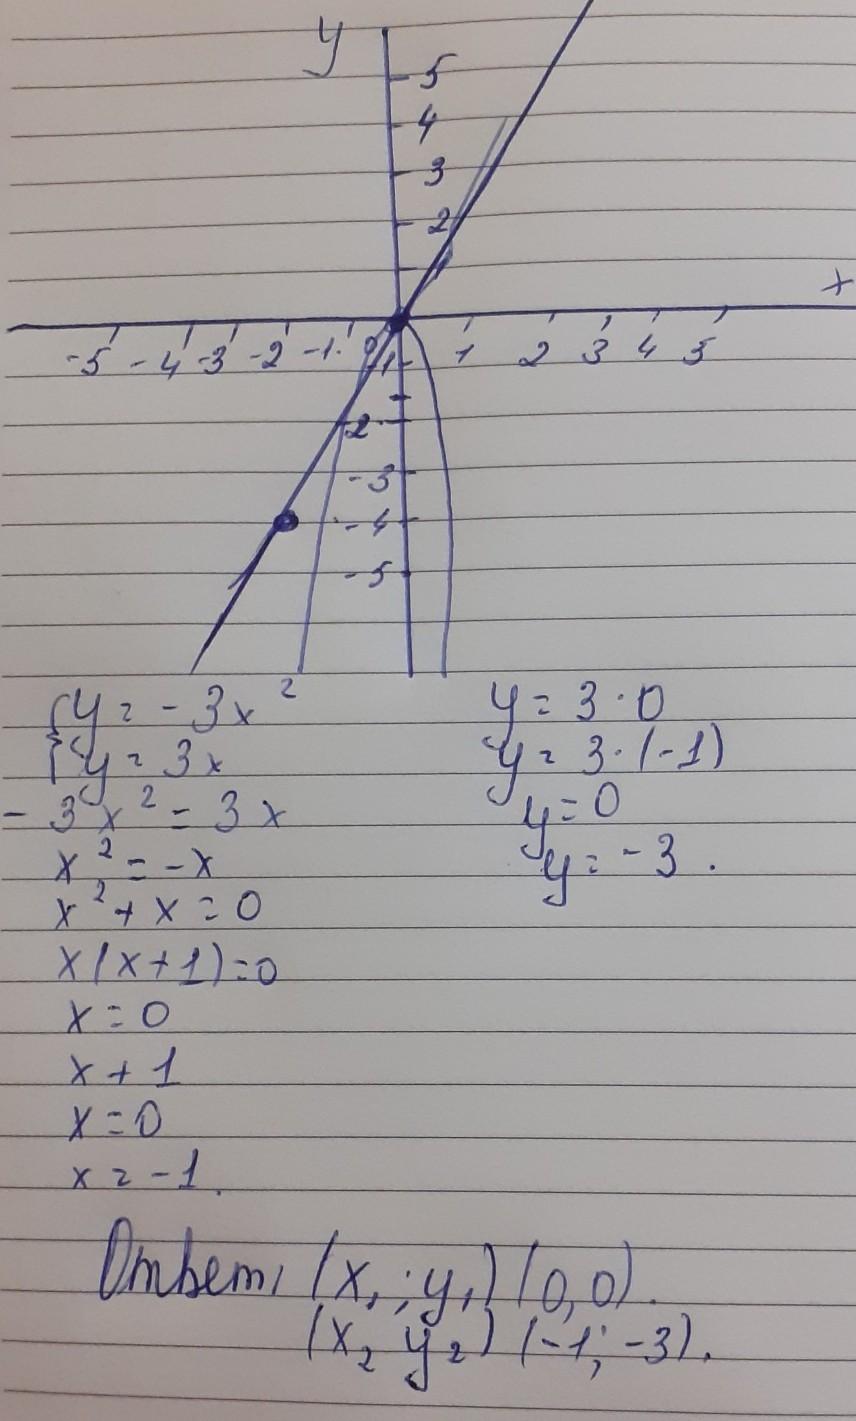 y
5
4
3
2
1
x
-5 -4 -3 -2 -1 0 1 2 3 4 5
-1
-2
-3
-4
-5
{y = -3x²
y = 3x
-3x² = 3x
x² = -x
x² + x = 0
x(x+1)=0
x = 0
x + 1
x = 0
x = -1.
y = 3·0
y = 3·(-1)
y = 0
y = -3.
Ответ, (x₁; y₁) (0,0).
(x₂ y₂) (-1; -3).